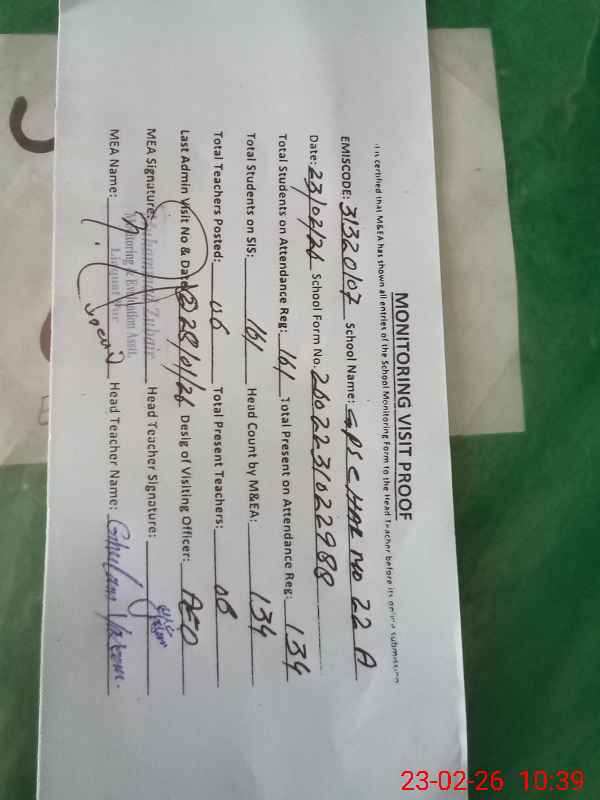 MONITORING VISIT PROOF
It is certified that M&EA has shown all entries of the School Monitoring Form to the Head Teacher before its online submission
EMISCODE: 31320107 School Name: GPS CHAK NO 22 A
Date: 23/02/26 School Form No. 2602231022988
Total Students on Attendance Reg: 161 Total Present on Attendance Reg: 134
Total Students on SIS: 161 Head Count by M&EA: 134
Total Teachers Posted: 06 Total Present Teachers:
Last Admin Visit No & Date: 28/01/26 Desig of Visiting Officer: AEO
MEA Signature: Head Teacher Signature:
Muhammad Zuhair
Monitoring & Evaluation Asstt.
Liaquat Pur
MEA Name: Head Teacher Name: Ghulam
23-02-26 10:39